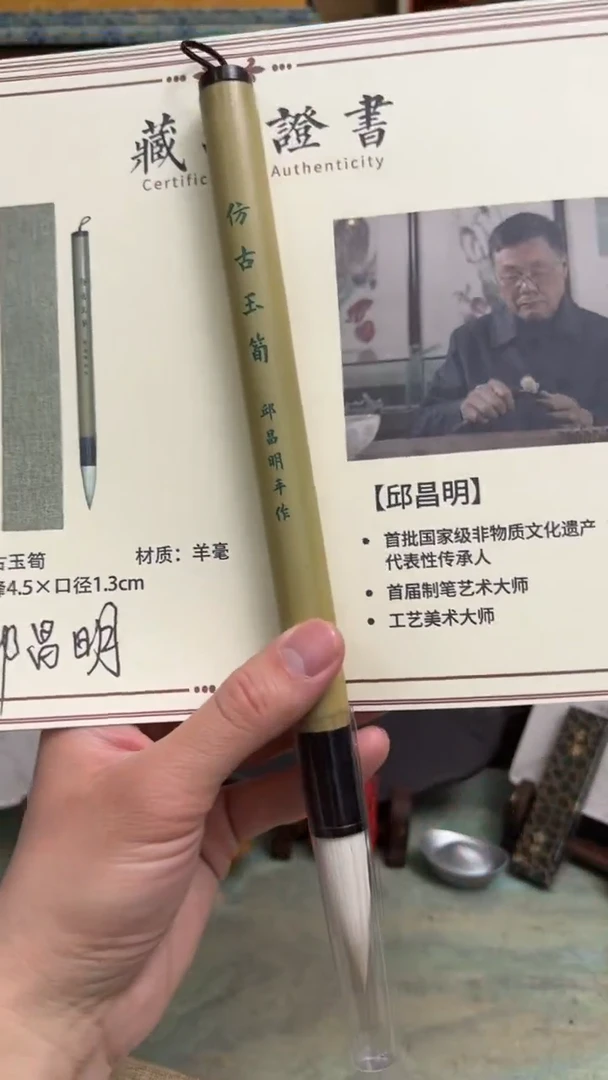 藏 證書
Certific Authenticity
仿古玉筍
邱昌明手作
古玉筍
材质：羊毫
锋4.5×口径1.3cm
邱昌明
【邱昌明】
• 首批国家级非物质文化遗产
代表性传承人
• 首届制笔艺术大师
• 工艺美术大师